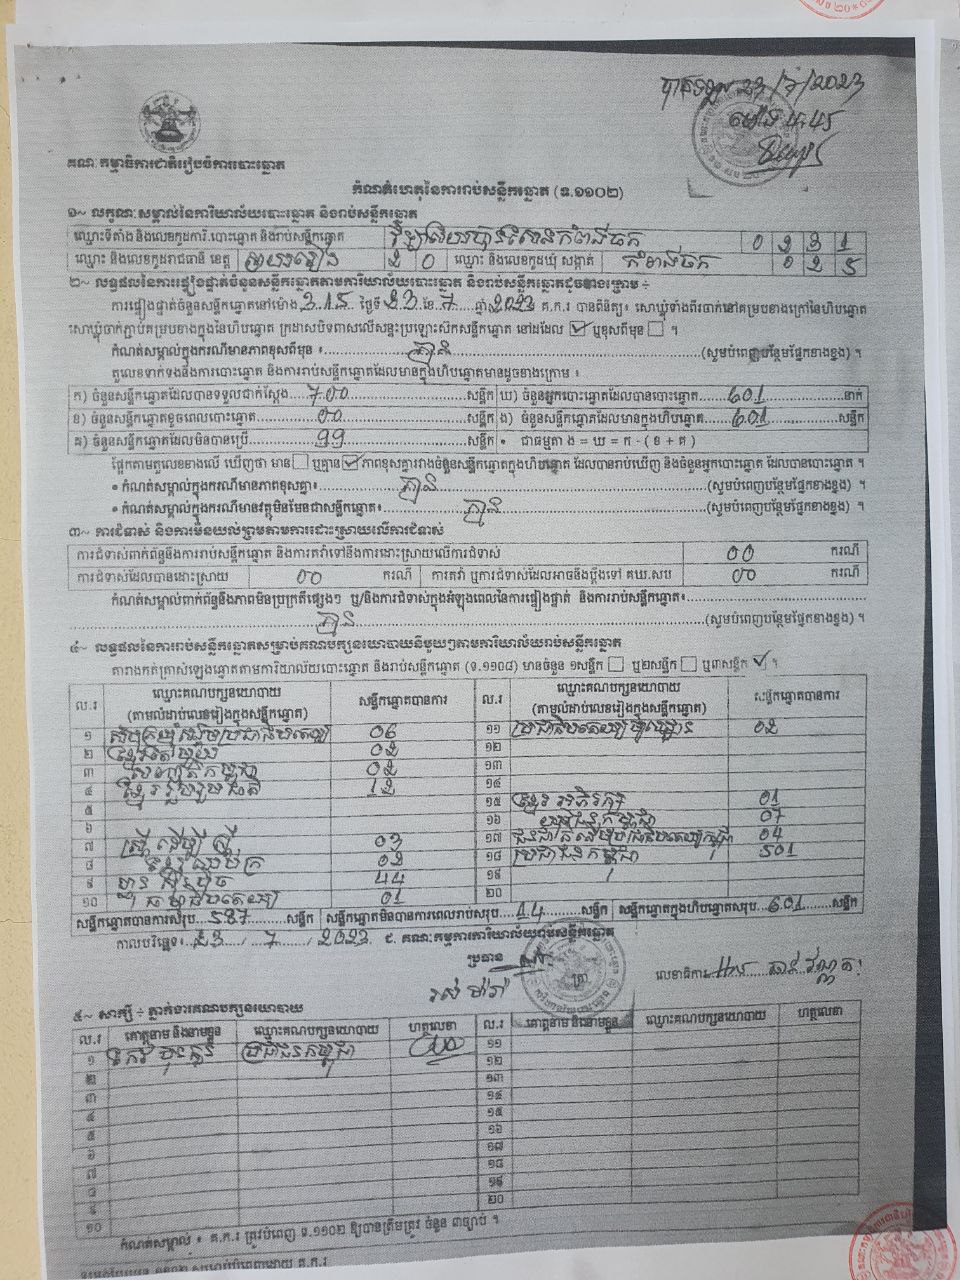 គណៈកម្មាធិការជាតិរៀបចំការបោះឆ្នោត
កំណត់ហេតុនៃការរាប់សន្លឹកឆ្នោត (ទ.១១០២)
១~ លក្ខណៈសម្គាល់នៃការិយាល័យបោះឆ្នោត និងរាប់សន្លឹកឆ្នោត
ឈ្មោះទីតាំង និងលេខកូដការិ.បោះឆ្នោត និងរាប់សន្លឹកឆ្នោត 0 2 3 1
ឈ្មោះ និងលេខកូដរាជធានី ខេត្ត ស្វាយរៀង 2 0 ឈ្មោះ និងលេខកូដឃុំ សង្កាត់ កំពង់ចក 0 2 5
២~ លទ្ធផលនៃការផ្ទៀងផ្ទាត់ចំនួនសន្លឹកឆ្នោតតាមការិយាល័យបោះឆ្នោត និងរាប់សន្លឹកឆ្នោតដូចខាងក្រោម ÷
ការផ្ទៀងផ្ទាត់ចំនួនសន្លឹកឆ្នោតនៅម៉ោង 3:15 ថ្ងៃទី 23 ខែ 7 ឆ្នាំ 2023 គ.ក.រ បានពិនិត្យ៖ សោឃ្លុំទាំងពីរចាក់នៅគម្របខាងក្រៅនៃហិបឆ្នោត
សោឃ្លុំចាក់ភ្ជាប់គម្របខាងក្នុងនៃហិបឆ្នោត ក្រដាសបិទពាសលើសន្ទះប្រឡោះស៊កសន្លឹកឆ្នោត នៅដដែល ☑ ឬខុសពីមុន ☐ ។
កំណត់សម្គាល់ក្នុងករណីមានភាពខុសពីមុន ៖ គ្មាន (សូមបំពេញបន្ថែមផ្នែកខាងខ្នង) ។
តួលេខទាក់ទងនឹងការបោះឆ្នោត និងការរាប់សន្លឹកឆ្នោតដែលមានក្នុងហិបឆ្នោតមានដូចខាងក្រោម ៖
ក) ចំនួនសន្លឹកឆ្នោតដែលបានទទួលជាក់ស្ដែង 700 សន្លឹក ឃ) ចំនួនអ្នកបោះឆ្នោតដែលបានបោះឆ្នោត 601 នាក់
ខ) ចំនួនសន្លឹកឆ្នោតខូចពេលបោះឆ្នោត 00 សន្លឹក ង) ចំនួនសន្លឹកឆ្នោតដែលមានក្នុងហិបឆ្នោត 601 សន្លឹក
គ) ចំនួនសន្លឹកឆ្នោតដែលមិនបានប្រើ 99 សន្លឹក • ជាធម្មតា ង = ឃ = ក - ( ខ + គ )
ផ្អែកតាមតួលេខខាងលើ ឃើញថា មាន ☐ ឬគ្មាន ☑ ភាពខុសគ្នារវាងចំនួនសន្លឹកឆ្នោតក្នុងហិបឆ្នោត ដែលបានរាប់ឃើញ និងចំនួនអ្នកបោះឆ្នោត ដែលបានបោះឆ្នោត ។
• កំណត់សម្គាល់ក្នុងករណីមានភាពខុសគ្នា៖ គ្មាន (សូមបំពេញបន្ថែមផ្នែកខាងខ្នង) ។
• កំណត់សម្គាល់ក្នុងករណីមានវត្ថុមិនមែនជាសន្លឹកឆ្នោត៖ គ្មាន (សូមបំពេញបន្ថែមផ្នែកខាងខ្នង) ។
៣~ ការជំទាស់ និងការមិនយល់ព្រមតាមការដោះស្រាយលើការជំទាស់
ការជំទាស់ពាក់ព័ន្ធនឹងការរាប់សន្លឹកឆ្នោត និងការតវ៉ាទៅនឹងការដោះស្រាយលើការជំទាស់ 00 ករណី
ការជំទាស់ដែលបានដោះស្រាយ 00 ករណី ការតវ៉ា ឬការជំទាស់ដែលអាចនឹងប្ដឹងទៅ គឃ.សប 00 ករណី
កំណត់សម្គាល់ពាក់ព័ន្ធនឹងភាពមិនប្រក្រតីផ្សេងៗ ឬ/និងការជំទាស់ក្នុងអំឡុងពេលនៃការផ្ទៀងផ្ទាត់ និងការរាប់សន្លឹកឆ្នោត៖
គ្មាន (សូមបំពេញបន្ថែមផ្នែកខាងខ្នង) ។
៤~ លទ្ធផលនៃការរាប់សន្លឹកឆ្នោតសម្រាប់គណបក្សនយោបាយនីមួយៗតាមការិយាល័យរាប់សន្លឹកឆ្នោត
តារាងកត់ត្រាសំឡេងឆ្នោតតាមការិយាល័យបោះឆ្នោត និងរាប់សន្លឹកឆ្នោត (ទ.១១០៨) មានចំនួន ១សន្លឹក ☐ ឬ២សន្លឹក ☐ ឬ៣សន្លឹក ☑ ។
ល.រ ឈ្មោះគណបក្សនយោបាយ (តាមលំដាប់លេខរៀងក្នុងសន្លឹកឆ្នោត) សន្លឹកឆ្នោតបានការ ល.រ ឈ្មោះគណបក្សនយោបាយ (តាមលំដាប់លេខរៀងក្នុងសន្លឹកឆ្នោត) សន្លឹកឆ្នោតបានការ
១ 06 ១១ 02
២ ខ្មែរតែមួយ 02 ១២
៣ សញ្ជាតិកម្ពុជា 02 ១៣
៤ ខ្មែររួបរួមជាតិ 12 ១៤
៥ ១៥ ខ្មែរអភិរក្ស 01
៦ ១៦ យុវជនកម្ពុជា 07
៧ ស្ត្រីដើម្បីស្ត្រី 03 ១៧ 04
៨ 02 ១៨ ប្រជាជនកម្ពុជា 501
៩ ហ៊្វុនស៊ិនប៉ិច 44 ១៩
១០ ធម្មាធិបតេយ្យ 01 ២០
សន្លឹកឆ្នោតបានការសរុប 587 សន្លឹក សន្លឹកឆ្នោតមិនបានការពេលរាប់សរុប 14 សន្លឹក សន្លឹកឆ្នោតក្នុងហិបឆ្នោតសរុប 601 សន្លឹក
កាលបរិច្ឆេទ៖ 23 / 7 / 2023 ជ. គណៈកម្មការការិយាល័យរាប់សន្លឹកឆ្នោត
ប្រធាន លេខាធិការ
៥~ សាក្សី ÷ ភ្នាក់ងារគណបក្សនយោបាយ
ល.រ គោត្តនាម និងនាមខ្លួន ឈ្មោះគណបក្សនយោបាយ ហត្ថលេខា ល.រ គោត្តនាម និងនាមខ្លួន ឈ្មោះគណបក្សនយោបាយ ហត្ថលេខា
១ ប្រជាជនកម្ពុជា ១១
២ ១២
៣ ១៣
៤ ១៤
៥ ១៥
៦ ១៦
៧ ១៧
៨ ១៨
៩ ១៩
១០ ២០
កំណត់សម្គាល់ ៖ គ.ក.រ ត្រូវបំពេញ ទ.១១០២ ឱ្យបានត្រឹមត្រូវ ចំនួន ៣ច្បាប់ ។